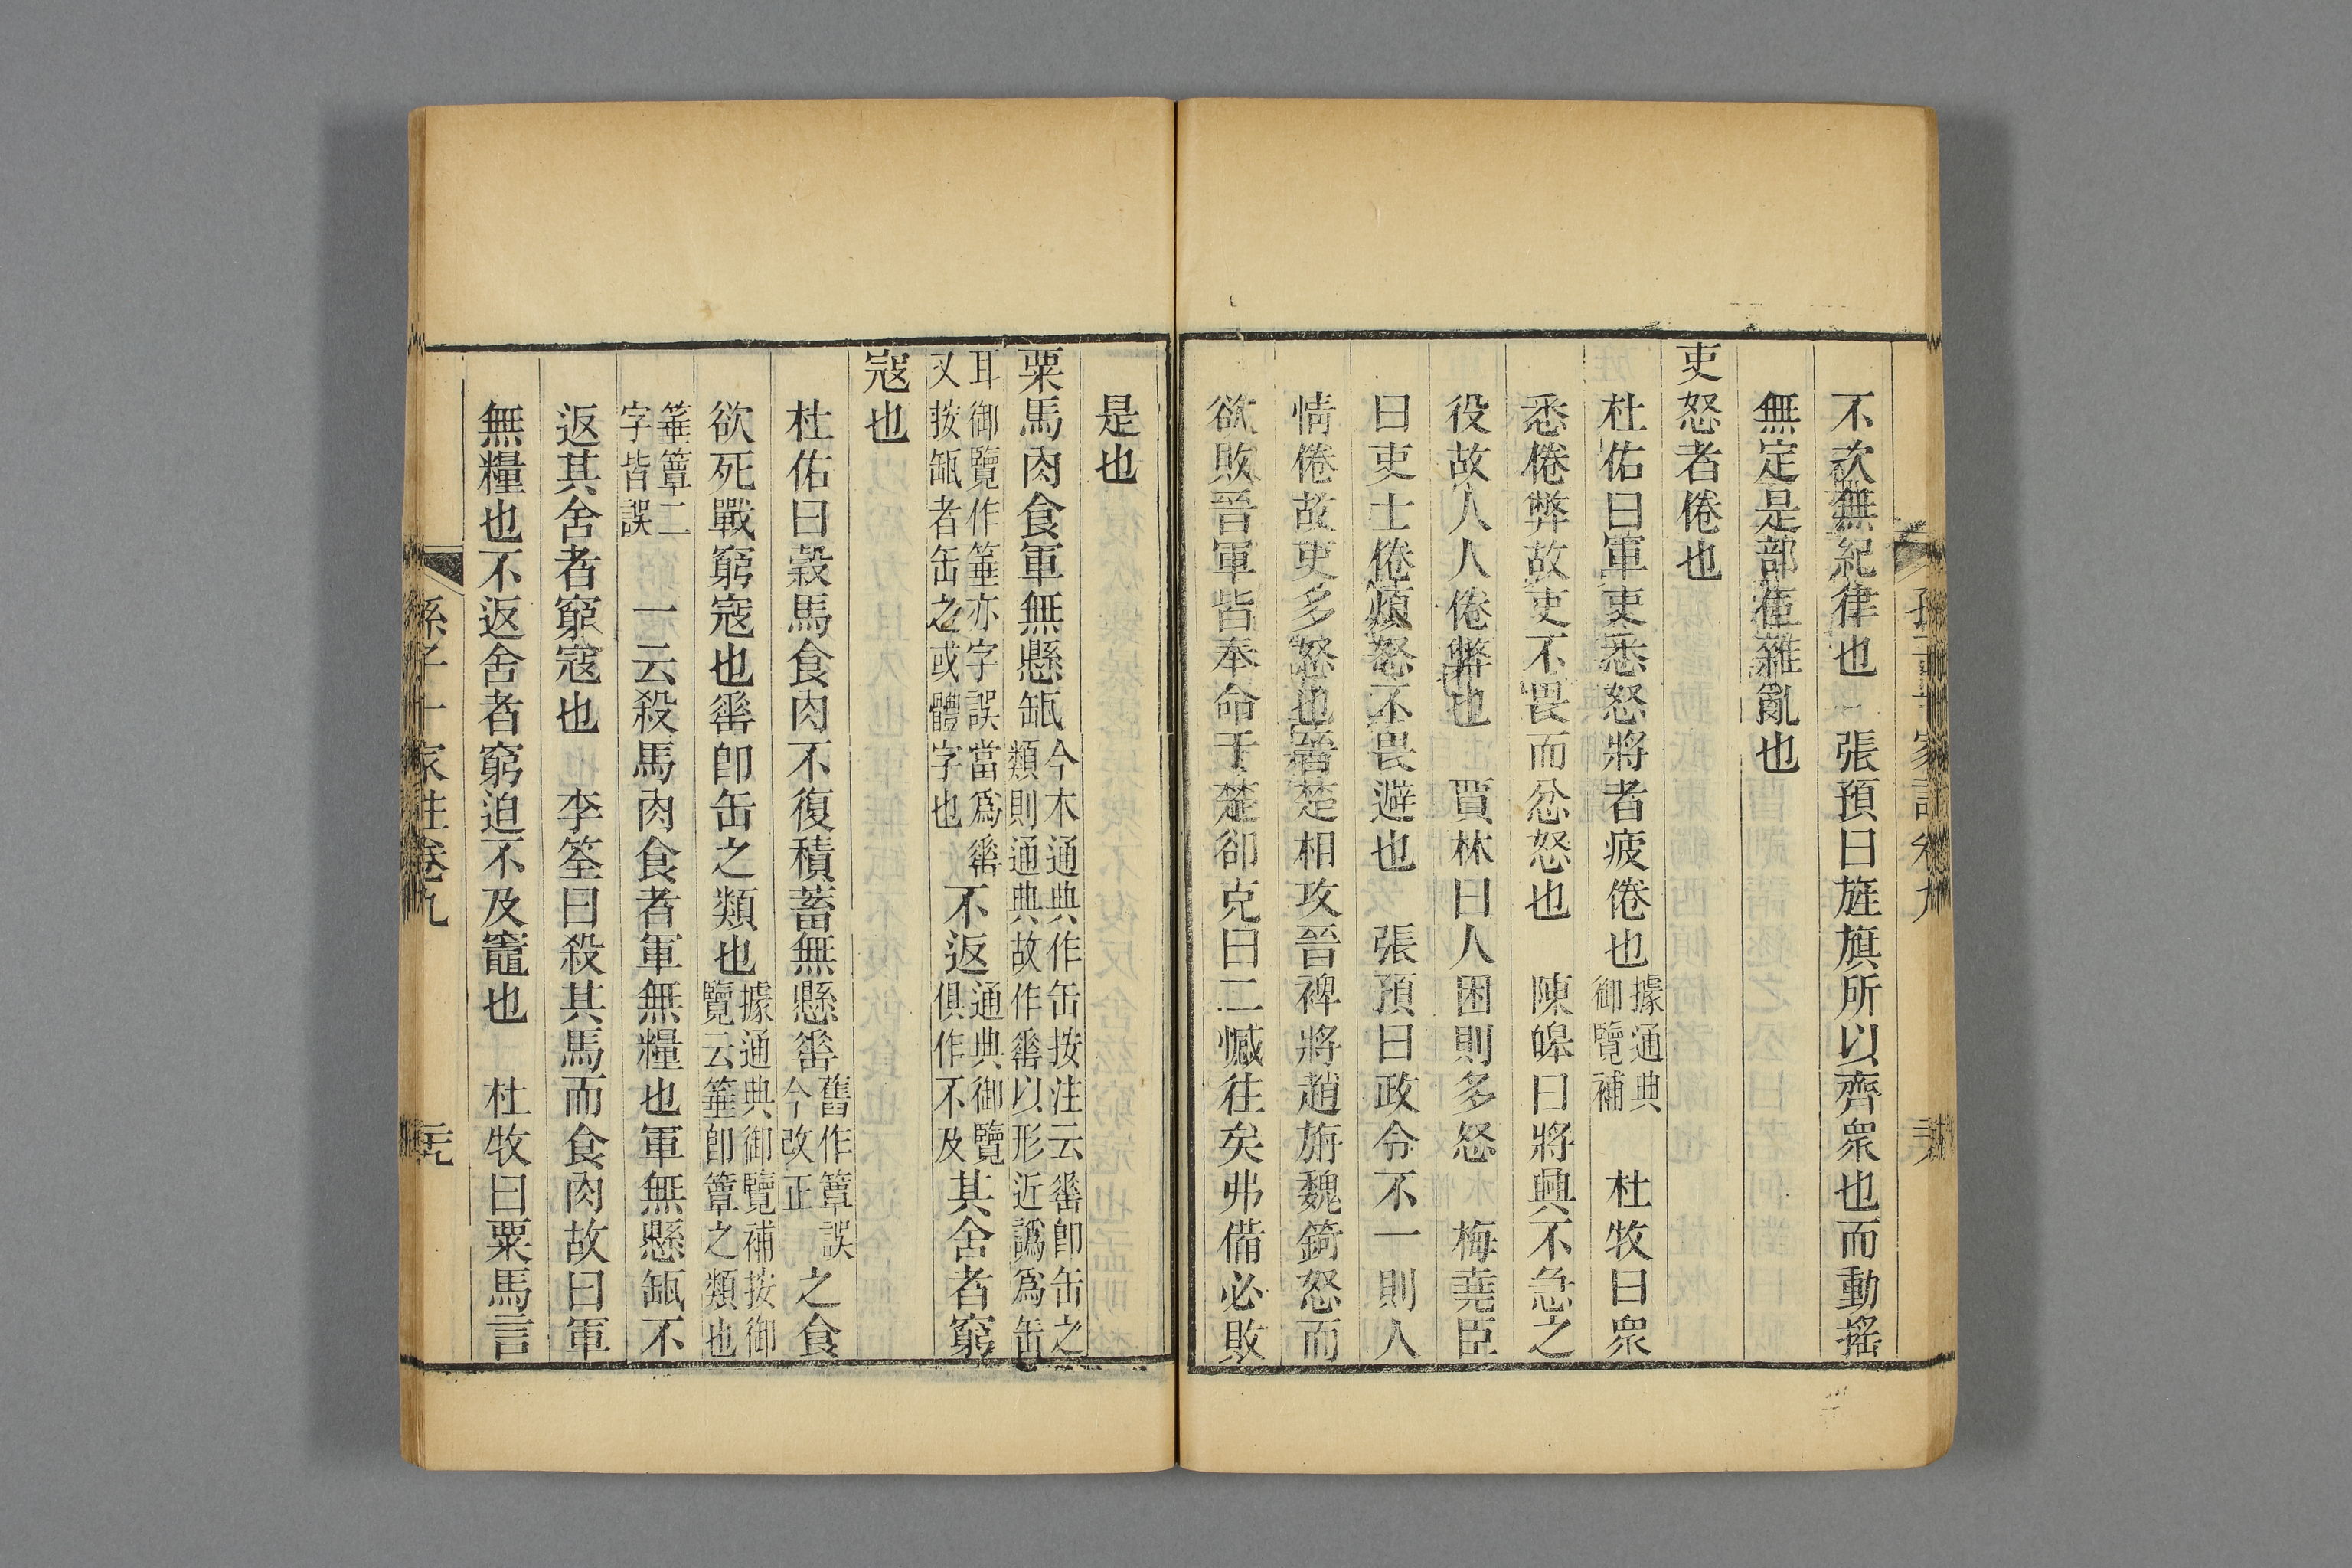 不次無紀律也　張預曰旌旗所以齊衆也而動搖
無定是部伍雜亂也
吏怒者倦也
杜佑曰軍吏悉怒將者疲倦也據通典御覽補　杜牧曰衆
悉倦弊故吏不畏而忿怒也　陳皞曰將興不急之
役故人人倦弊也　賈林曰人困則多怒　梅堯臣
曰吏士倦煩怒不畏避也　張預曰政令不一則人
情倦故吏多怒也晉楚相攻晉裨將趙旃魏錡怒而
欲敗晉軍皆奉命于楚郤克曰二憾往矣弗備必敗
是也
粟馬肉食軍無懸缻今本通典作缶按注云䍋卽缶之類則通典故作䍋以形近譌爲缶
耳御覽作箠亦字誤當爲䍋又按缻者缶之或體字也不返通典御覽俱作不及其舍者窮
寇也
杜佑曰穀馬食肉不復積蓄無懸䍋舊作簟誤今改正之食
欲死戰窮寇也䍋卽缶之類也據通典御覽補按御覽云箠卽簟之類也
箠簟二字皆誤　一云殺馬肉食者軍無糧也軍無懸缻不
返其舍者窮寇也　李筌曰殺其馬而食肉故曰軍
無糧也不返舍者窮迫不及竈也　杜牧曰粟馬言
孫子十家注卷九